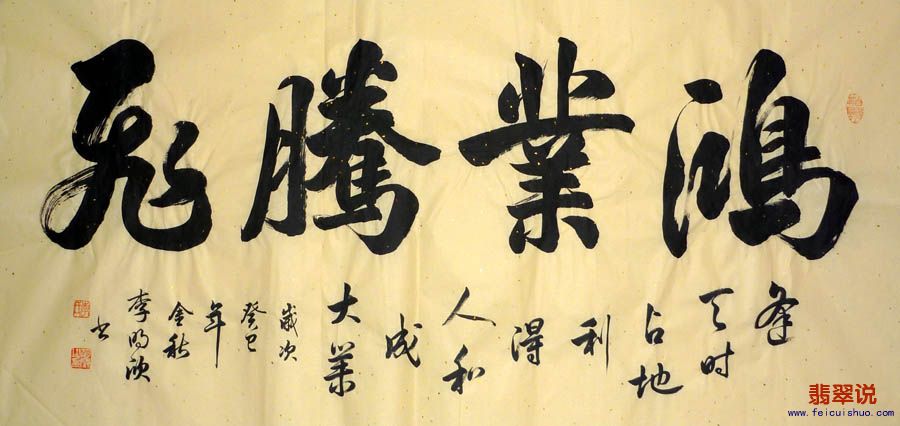 鴻業騰飛
逢天时占地利得人和成大業
歲次癸巳年金秋李明欣书
翡翠说
www.feicuishuo.com